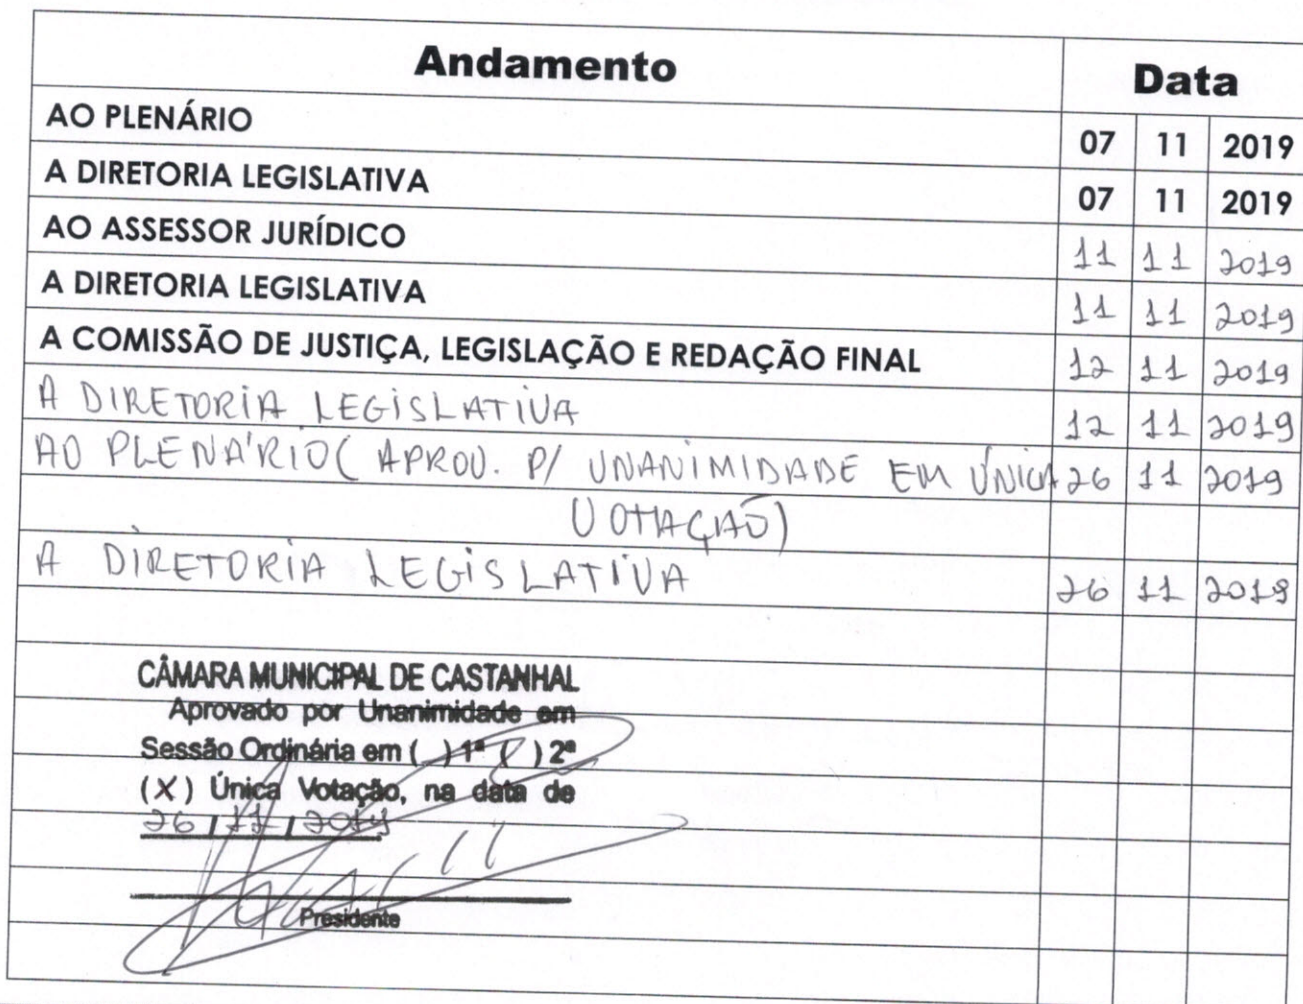 Andamento Data
AO PLENÁRIO 07 11 2019
A DIRETORIA LEGISLATIVA 07 11 2019
AO ASSESSOR JURÍDICO 11 11 2019
A DIRETORIA LEGISLATIVA 11 11 2019
A COMISSÃO DE JUSTIÇA, LEGISLAÇÃO E REDAÇÃO FINAL 12 11 2019
A DIRETORIA LEGISLATIVA 12 11 2019
AO PLENÁRIO ( APROV. P/ UNANIMIDADE EM ÚNICA 26 11 2019
VOTAÇÃO)
A DIRETORIA LEGISLATIVA 26 11 2019
CÂMARA MUNICIPAL DE CASTANHAL
Aprovado por Unanimidade em
Sessão Ordinária em ( ) 1ª ( ) 2ª
(X) Única Votação, na data de
26 / 11 / 2019
Presidente